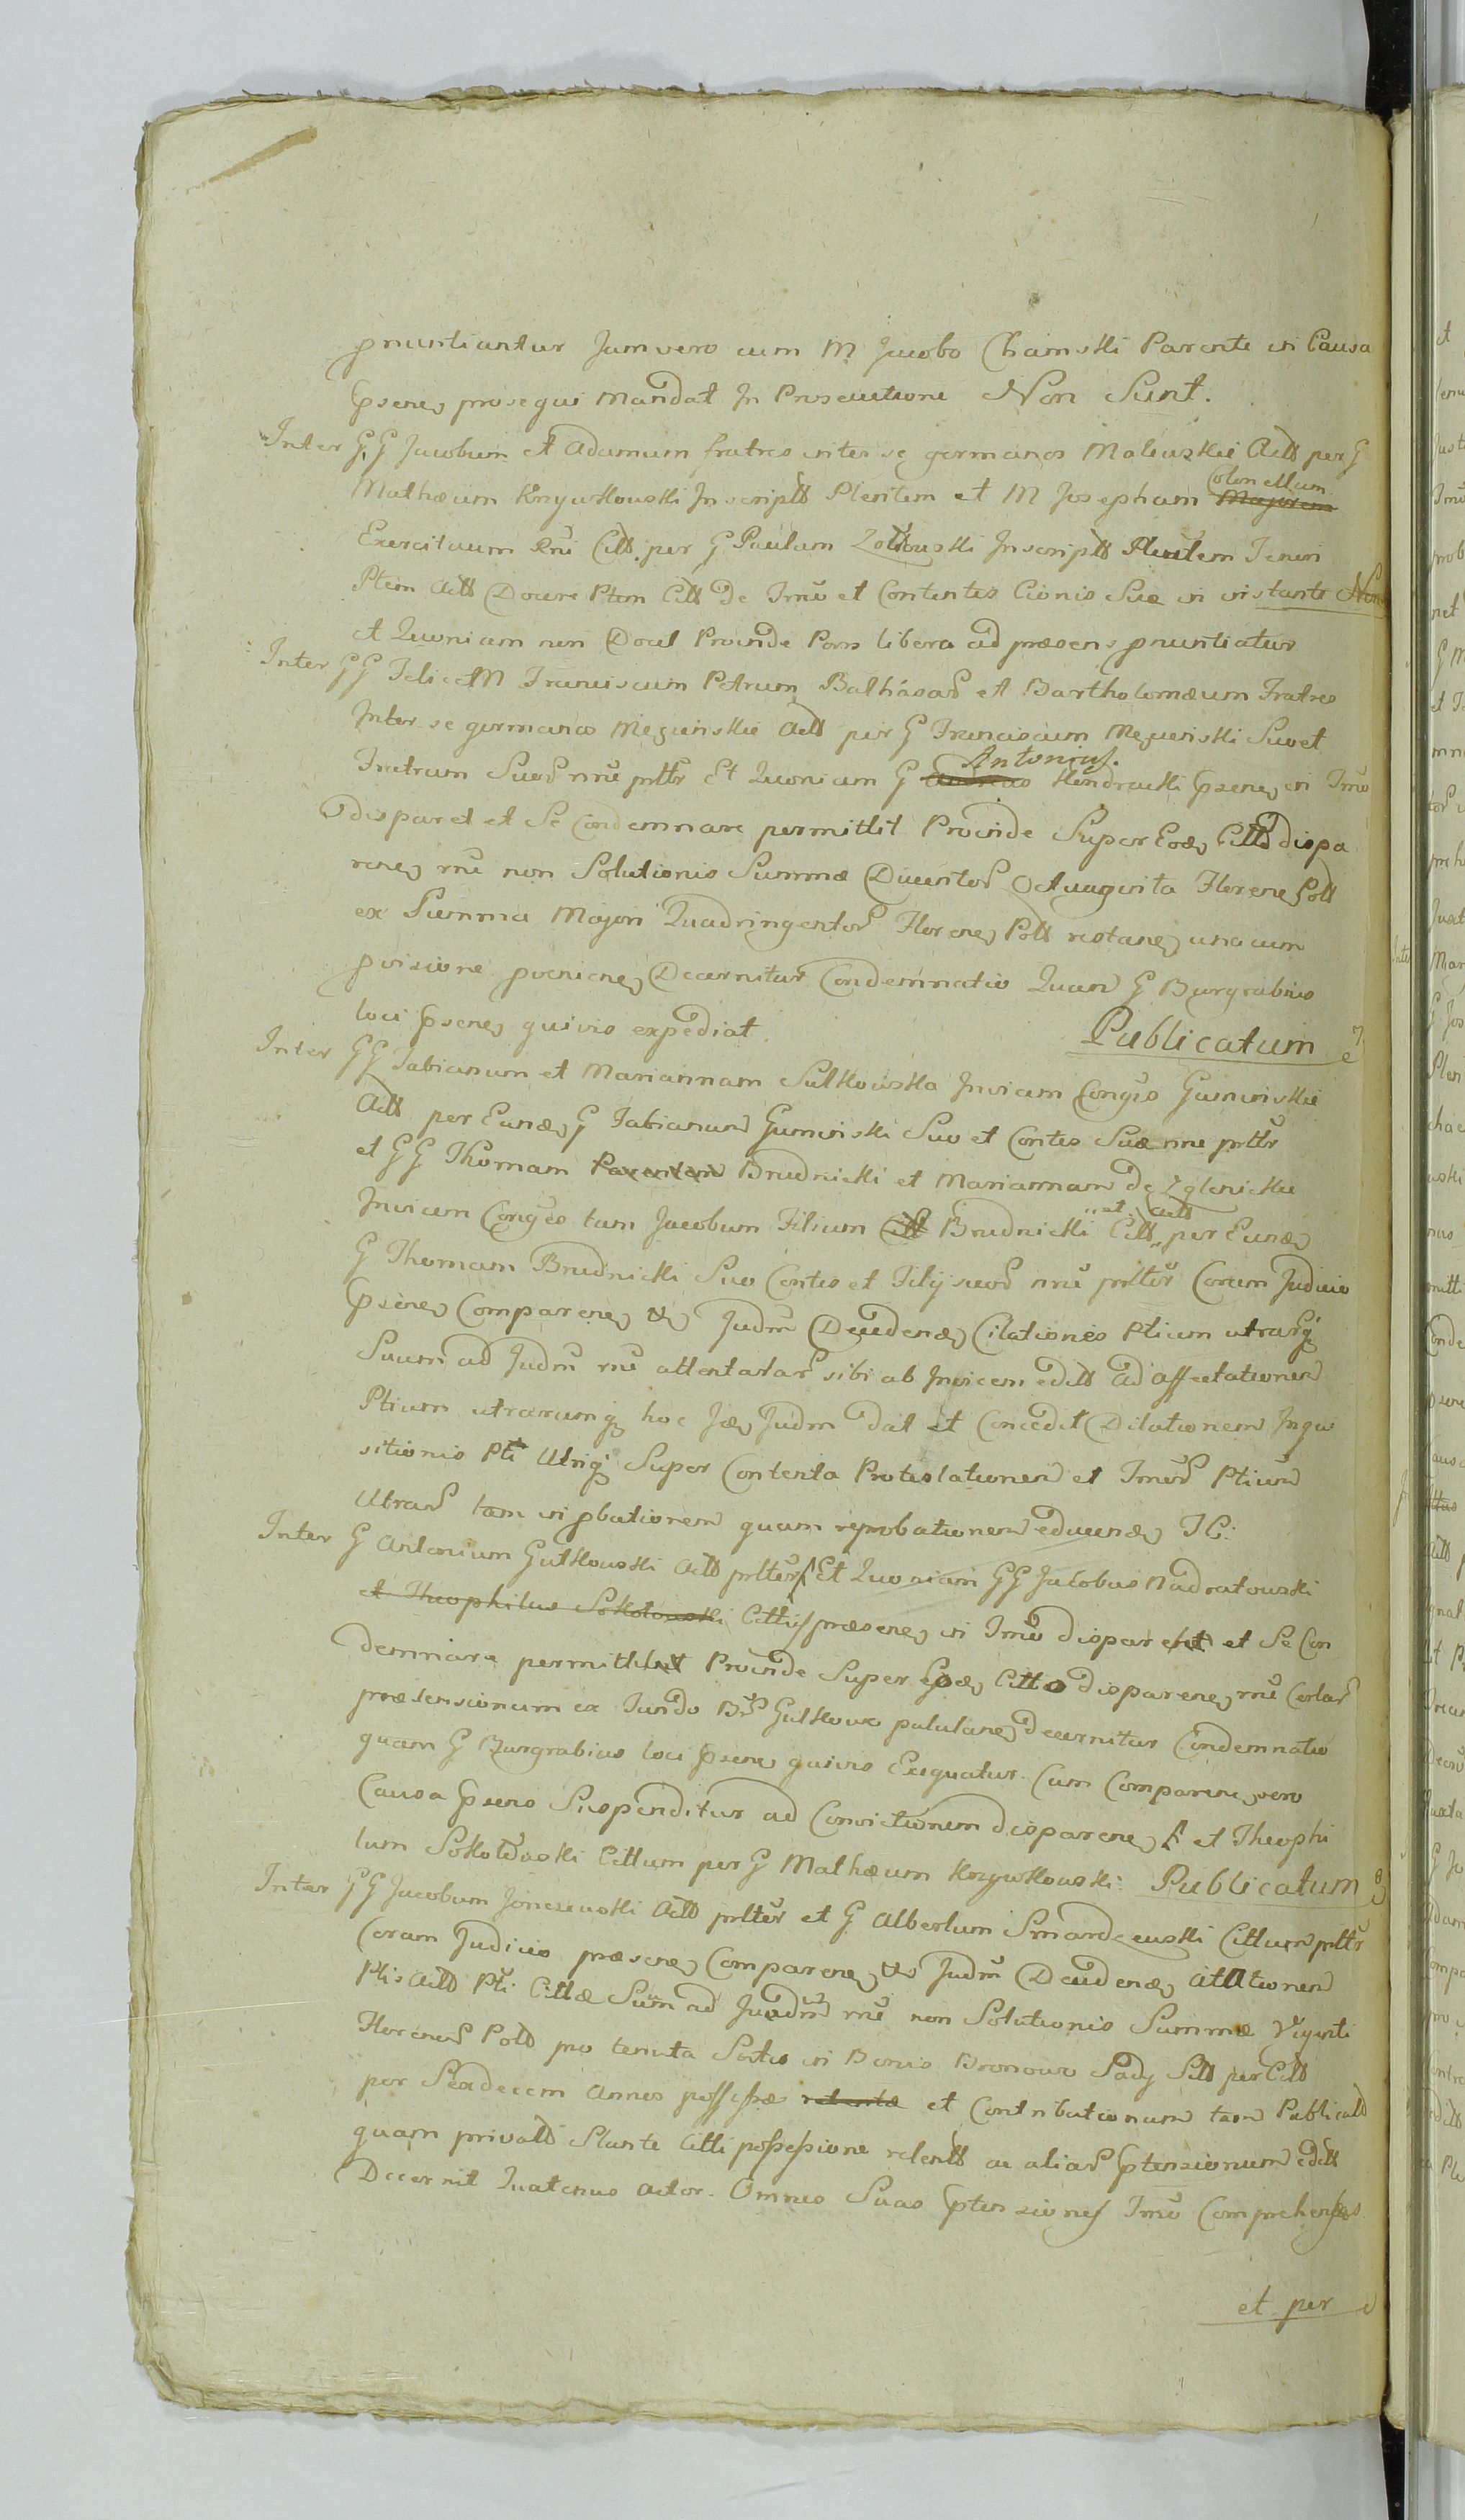 pnuntiantur Jam vero cum M Jacobo Chamski Parente in Causa
psene prosequi Mandat In Prosecutione Non Sunt.
Inter GG Jacobum et Adamum fratres inter se germanos Maleuskie Actt per G
Mathæum Krzyuskouski Inscriptt Plentem et M Josephum Majorem Colonellum
Exercituum Rni Citt per G Paulum Inscriptt Plentem Teneri
Ptem Actt Docere Ptem Citt De Tmo et Contentes Cionis Sue in instante Non
et Quoniam non Docet Proinde Pars libera ad præsens pnuntiatur
Inter GG Felicem Franciscum Petrum Balthasar et Bartholomæum Fratres
Inter se germanos Mezienskie Actt per G Franciscum Mezienski Suo et
Fratrum Suor nne prttr Et Quoniam G Antonius Kendracki psene in Tmo
disparet et Se Condemnare permittit Proinde Super Eode Citto dispa
rene rne non Solutionis Summæ Ducentor Octuaginta Florene Poll
ex Summa Majori Quadringentor Florene Poll restane una cum
pvisione pveniene Decernitur Condemnatio Quam G Burgrabius
loci psene quivis expediat. Publicatum
Inter GG Fabianum et Mariannam Sutkouska Invicem Conges Guminskie
Actt per Eunde G Fabianum Guminski Suo et Contis Suæ nne prttr
et GG Thomam Parentem Brudnicki et Mariannam de Zglenickie
Invicem Conges tum Jacobum Filium Citt Brudnicki Citt et Actt per Eunde
G Thomam Brudnicki Suo Contis et Filij suor nne prttur Coram Judicio
psene Comparene &c Judm Decidende Citationes Ptium utrarq
Suum ad Judm rne attentatar sibi ab Invicem editt ad affectationem
Ptium utrarumq hoc Jde Judm dat et Concedit Dilationem Inqui
sitionis Pti Utriq Super Contenta Protestationem et Tmor Ptium
Utrar tam in pbationem quam reprobationem educende IC:
Inter G Antonium Gutkouski Actt prttur Et Quoniam GG Jacobus Nadratouski
et Theophilus Sokolouski Cittus præsene in Tmo disparent et Se Con
demnare permittunt Proinde Super Eode Citto disparene rne Certar
prætensionum ex Fundo Br Gutkowo pululane decernitur Condemnatio
quam G Burgrabius loci psene quivis Exequatur. Cum Comparene vero
Causa psens Suspenditur ad Convictionem disparene et Theophi
lum Sokolouski Cittum per G Mathæum Krzyuskouski: Publicatum
Inter GG Jacobum Joneseuski Actt prttur et G Albertum Smardzeuski Cittum prttr
Coram Judicio præsene Comparene &c Judm Decidende Citationem
Ptis Actt Pti Cittæ Suum ad Juadm rne non Solutionis Summæ Viginti
Florenor Poltt pro tenuta Sortis in Bonis Bronowo Sady Sitt per Citt
per Sexdecem Annos possessæ retentæ et Contributionum tam Publicatt
quam privatt Stante Citti possessione retentt ac aliar ptensionum editt
Decernit Quatenus Actor. Omnes Suas ptensiones Tmo Comprehensas
et per